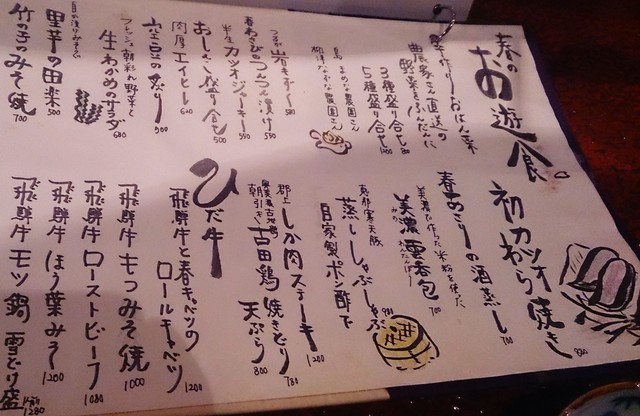 春の
お遊食
初カツオ
わら焼き 980
手作り おばん菜
農家さん直送の
野菜をふんだんに
3種盛り合せ
5種盛り合せ
春あさりの酒蒸し 700
美濃で作った米粉を使った
美濃雲呑包 700
恵那寒天豚
蒸ししゃぶしゃぶ 980
自家製ポン酢で
つまみ岩もずく 580
春わさびのつんつん漬け 550
半生カツオジャーキー 550
おしんこ盛り合せ 500
肉厚エイヒレ 600
空豆の炙り 500
フレッシュ朝彩れ野菜と
生わかめのサラダ 680
里芋の田楽 500
竹の子のみそ焼 700
郡上しか肉ステーキ 1200
奥美濃古地鶏
朝引き
古田鶏 焼きどり 780
天ぷら 800
ひだ牛
飛騨牛と春キャベツの
ロールキャベツ 1200
飛騨牛 もつみそ焼 1000
飛騨牛 ローストビーフ 1080
飛騨牛 ほう葉みそ 1200
飛騨牛 モツ鍋 雪どけ盛 1280